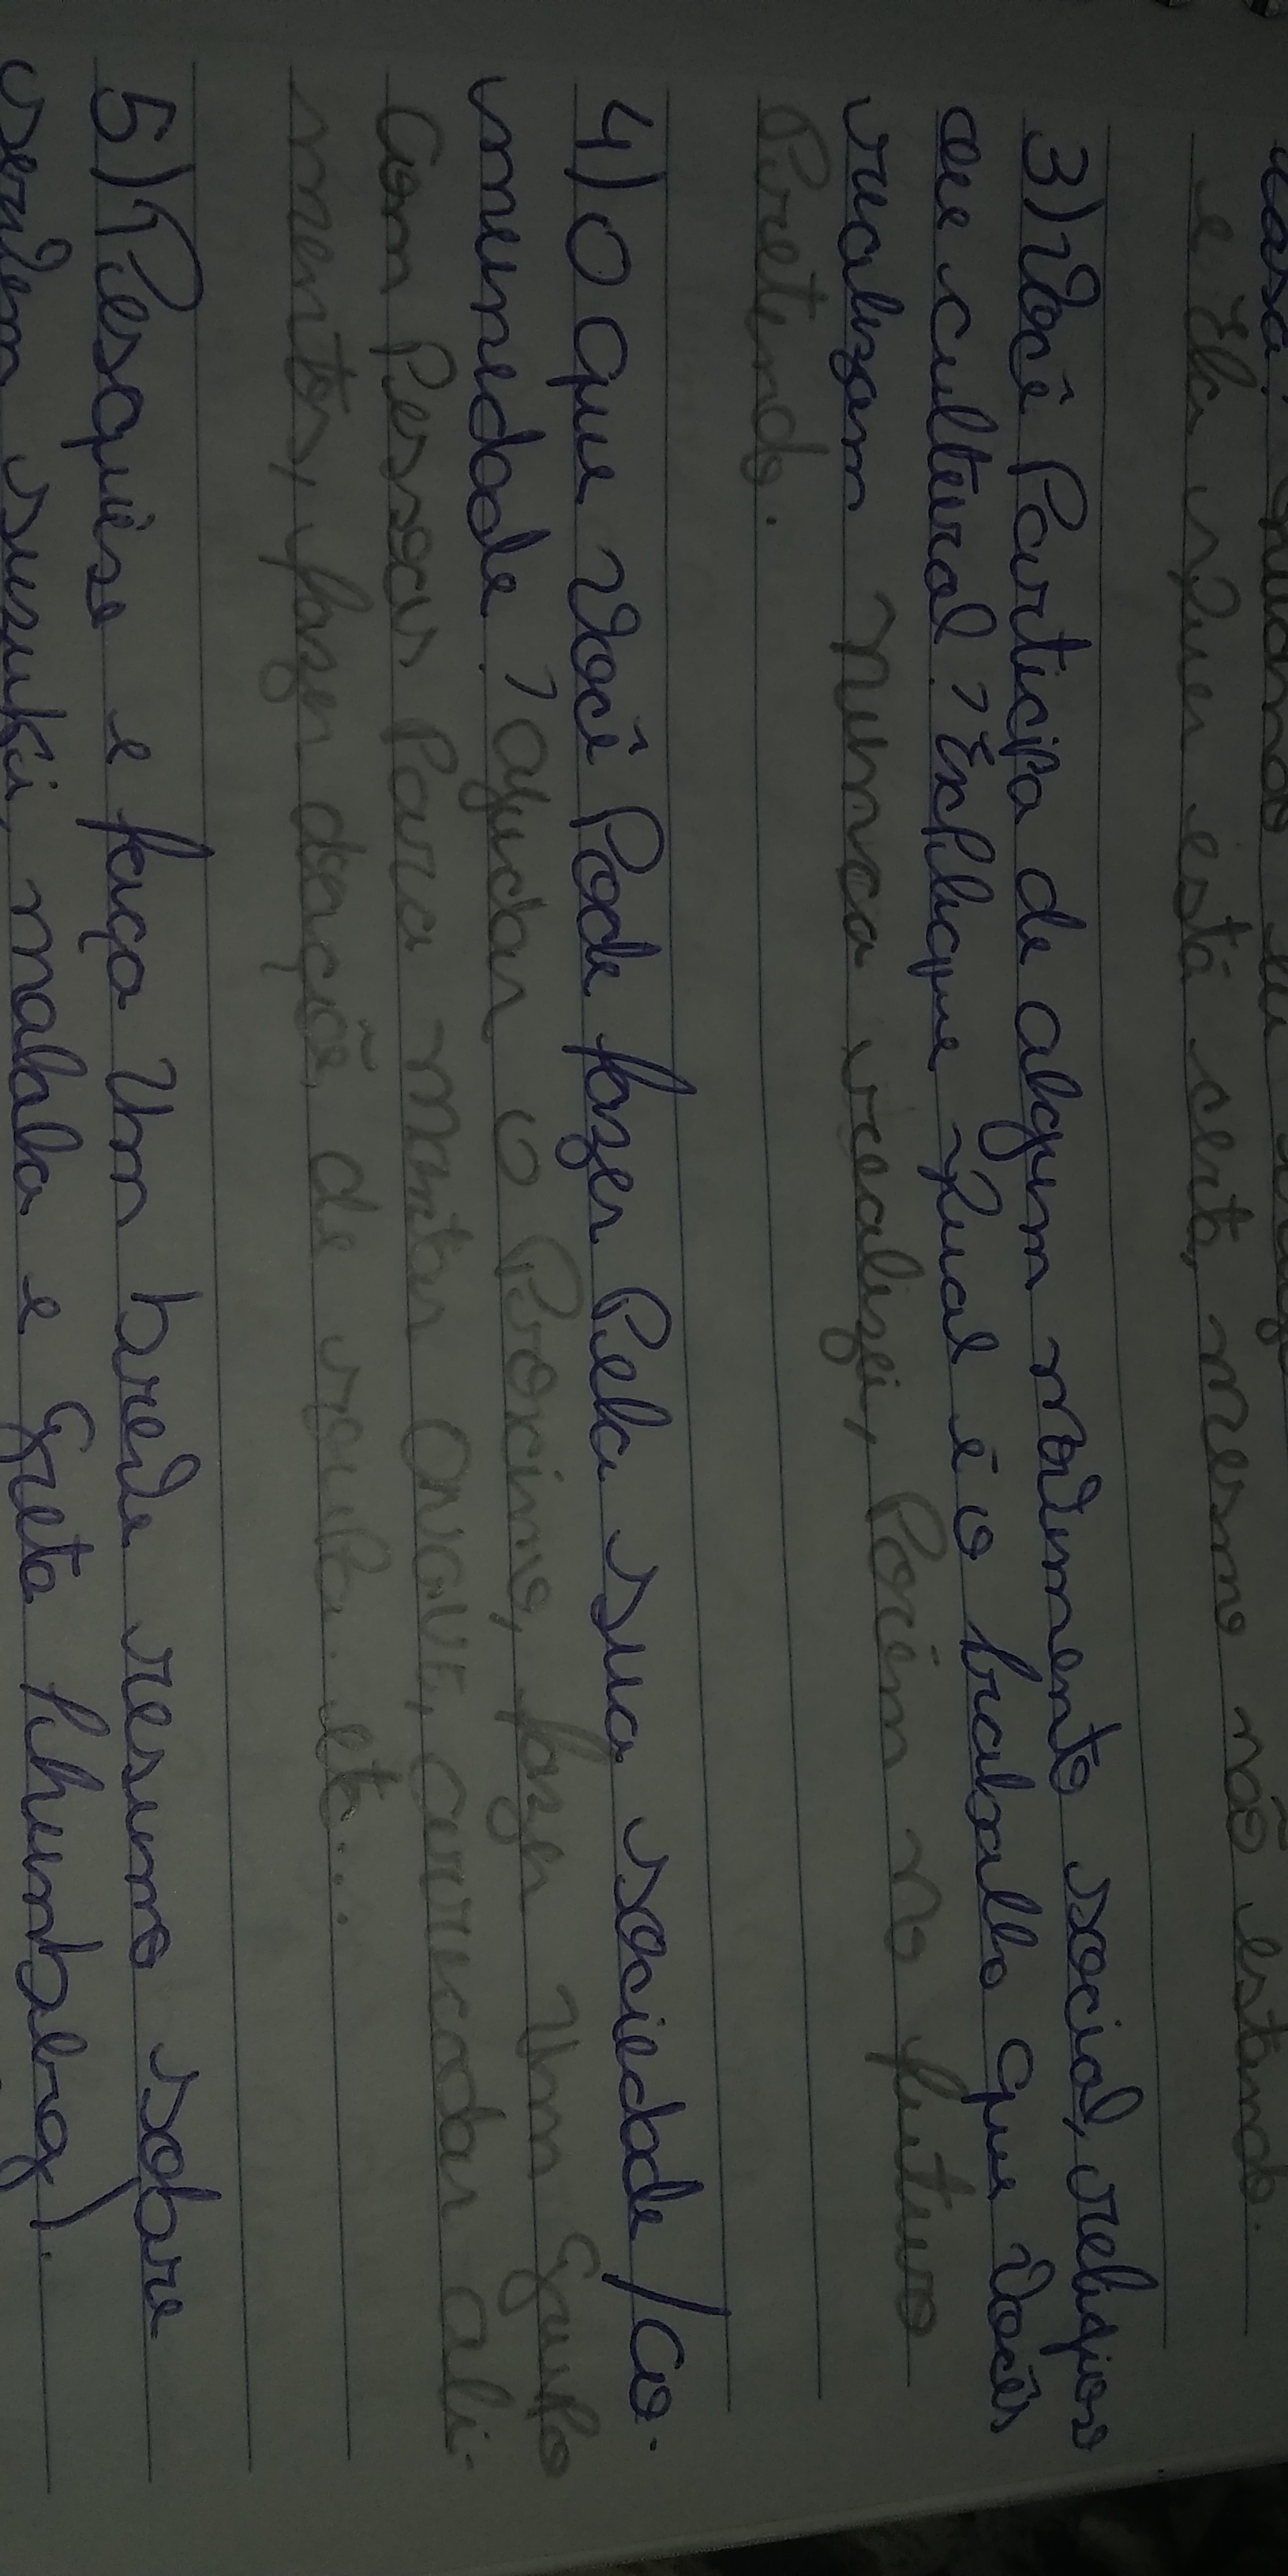 e Ela quer está certa, mesmo não estando.
3) Você Participa de algum movimento social, religioso
ou cultural? Explique qual é o trabalho que vocês
realizam Nunca realizei, Porém no futuro
Pretendo.
4) O que você Pode fazer Pela sua sociedade/co-
munidade? ajudar o Proximo, fazer um grupo
com Pessoas Para montar ONGVE, arrecadar ali-
mentos, fazer doação de roupa. etc...
5) Pesquise e faça um breve resumo sobre
severn suzuki, malala e Greta thunbherg).